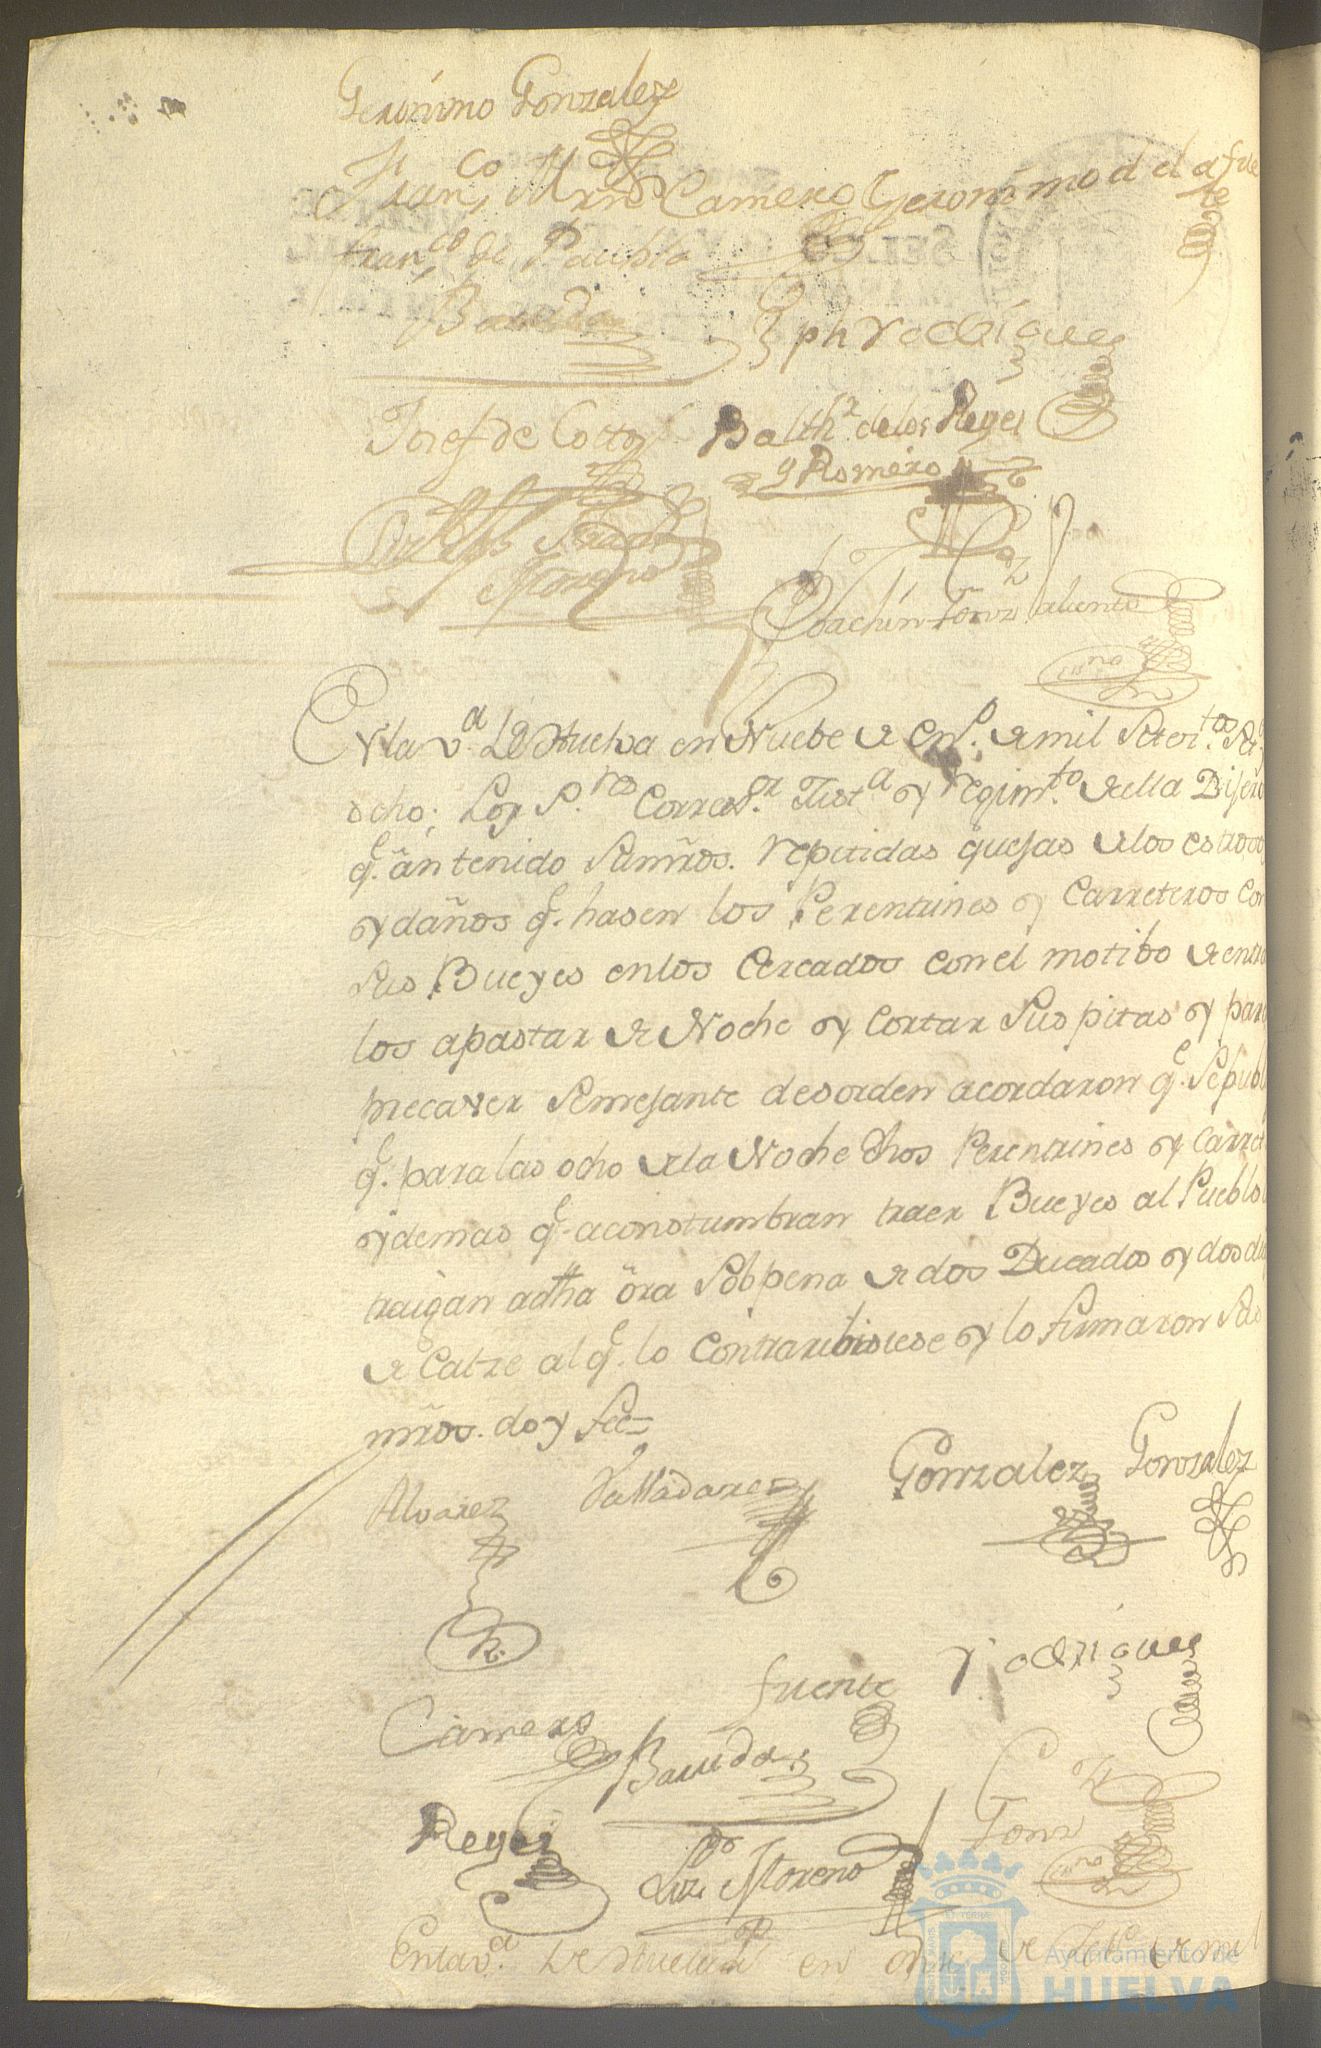 Geronimo Gonzalez
Fran,co Mrn Camero Geronimo de la fuente
fran,co de Paula
Barreda
Jph rodrigues
Josef de Cotto Balthr de los Reyes
y Romero
Moreno
Joachin Gonz
esno
En la va De Huelva en Nuebe de Eno. de mil Seteitos
ocho; Los S.res Corredr. Justa y regimto de ella Dijero
q.e an tenido Sumrõs. repitidas quejas de los estrosos
y daños q.e hasen los Perentrines y Carreteros Con
sus Bueyes en los Cercados con el motibo de entra
los apastar de Noche y cortar sus pitas y para
precaver semejante desorden acordaron q.e se publi
q.e para las ocho de la Noche dhos Perentrines y Carret
y demas q.e aconstumbran traer Bueyes al Pueblo
traigan adha ora Sobpena de dos Ducados y dos di
de Calze al q.e lo Contrario isiese y lo firmaron Sus
mrõs. doy fee=
Alvarez Valladares Gonzalez Gonzalez
fuente rodrigues
Camero
Barreda
Reyes
Moreno
Gonz
esno
En la va. De Huelva en onse de de mil
Ayuntamiento de
HUELVA